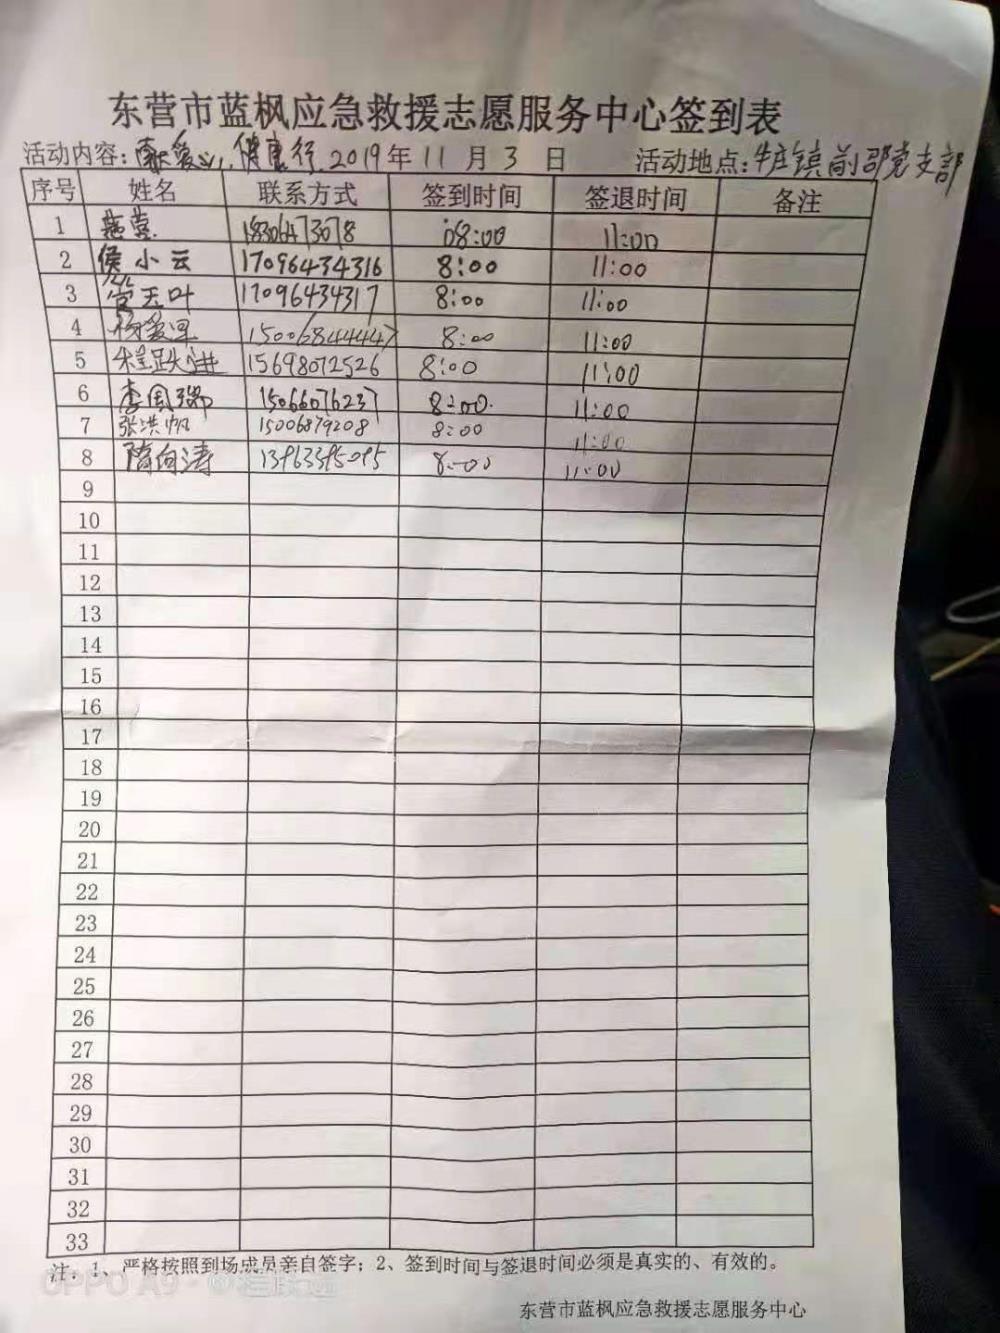 东营市蓝枫应急救援志愿服务中心签到表
活动内容：献爱心，健康行 2019年11月3日 活动地点：牛庄镇前邵党支部
序号 姓名 联系方式 签到时间 签退时间 备注
1 18306473078 08:00 11:00
2 侯小云 17096434316 8:00 11:00
3 17096434317 8:00 11:00
4 15006844447 8:00 11:00
5 程跃进 15698072526 8:00 11:00
6 李国瑞 15066076237 8:00 11:00
7 张洪帆 15006879208 8:00 11:00
8 隋向涛 13963395095 8:00 11:00
9
10
11
12
13
14
15
16
17
18
19
20
21
22
23
24
25
26
27
28
29
30
31
32
33
注：1、严格按照到场成员亲自签字；2、签到时间与签退时间必须是真实的、有效的。
OPPO A9 · ©程跃进
东营市蓝枫应急救援志愿服务中心